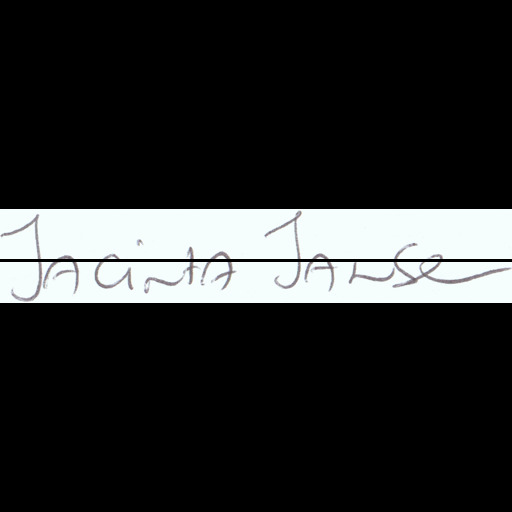 Jacinta Janse